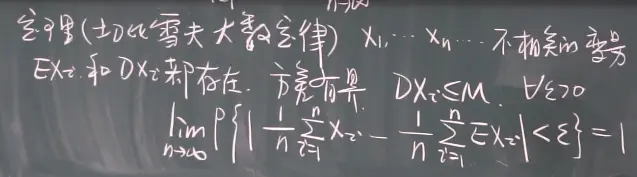 定理(切比雪夫大数定律) X₁,⋯Xₙ⋯不相关的变量
EXᵢ和DXᵢ都存在. 方差有界 DXᵢ≤M. ∀ε>0
lim_{n→∞} P{|1/n ∑_{i=1}^{n} Xᵢ - 1/n ∑_{i=1}^{n} EXᵢ| < ε} = 1